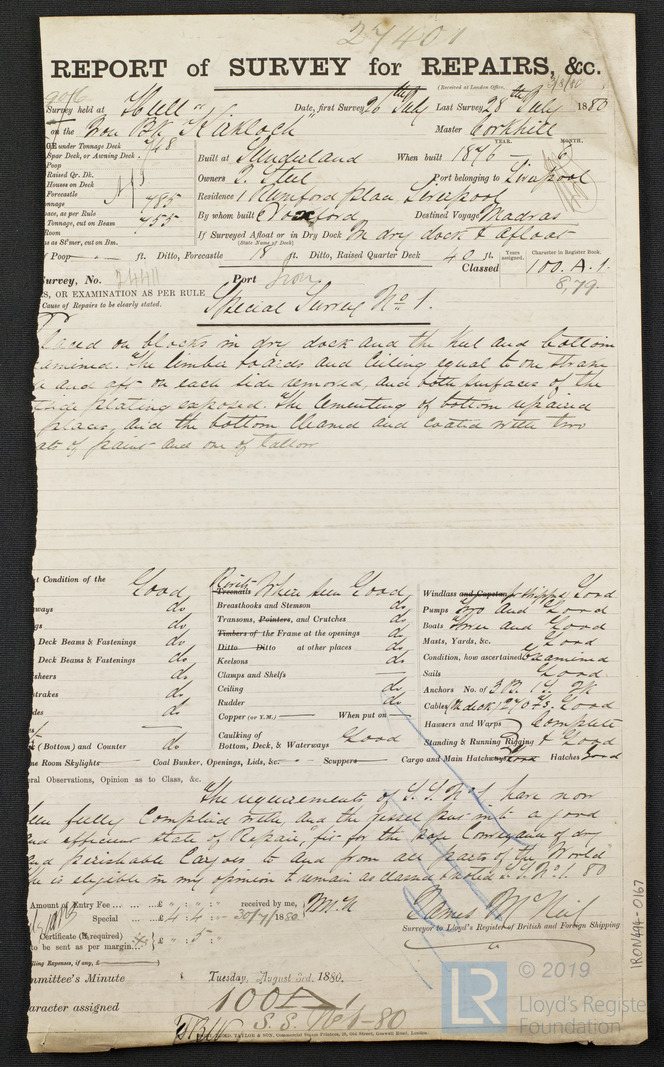 27401
REPORT of SURVEY for REPAIRS, &c.
(Received at London Office, 3/8/80
Survey held at Hull Date, first Survey 26th July Last Survey 28th July 1880
on the Iron Bk Kinloch Master Corkhill
under Tonnage Deck 748
Spar Deck, or Awning Deck
Poop
Raised Qr. Dk.
Houses on Deck
Forecastle
nnage 785
ace, as per Rule
Tonnage, cut on Beam 755
Room
as St'mer, cut on Bm.
YEAR. MONTH.
Built at Sunderland When built 1876 - 6
Owners J. Steel Port belonging to Liverpool
Residence 1 Mumford place, Liverpool
By whom built Doxford Destined Voyage Madras
If Surveyed Afloat or in Dry Dock In dry dock & afloat
(State Name of Dock)
Poop - ft. Ditto, Forecastle 18 ft. Ditto, Raised Quarter Deck 40 ft.
Years assigned. Character in Register Book.
Classed 100.A.1.
8,79
Survey, No. Port Iron
RS, OR EXAMINATION AS PER RULE
Cause of Repairs to be clearly stated.
Special Survey No. 1.
laced on blocks in dry dock and the keel and bottom
amined. The limber boards and Ceiling equal to one strake
and aft on each side removed, and both surfaces of the
side plating exposed. The cementing of bottom repaired
places, and the bottom cleaned and coated with two
ats of paint and one of tallow
nt Condition of the Good
ways do
gs do
Deck Beams & Fastenings do
Deck Beams & Fastenings do
sheers do
strakes do
des do
(Bottom) and Counter do
Rivets Treenails When seen Good
Breasthooks and Stemson do
Transoms, Pointers, and Crutches do
Timbers of the Frame at the openings do
Ditto Ditto at other places do
Keelsons do
Clamps and Shelfs —
Ceiling do
Rudder do
Copper (or Y.M.) — When put on —
Caulking of
Bottom, Deck, & Waterways Good
Windlass and Capstan Good
Pumps Two and Good
Boats Three and Good
Masts, Yards, &c. Good
Condition, how ascertained Examined
Sails Good
Anchors No. of 3 B. 1 S. 2 K
Cables 270 fs. Good
Hawsers and Warps Complete
Standing & Running Rigging & Good
ne Room Skylights — Coal Bunker, Openings, Lids, &c. - - Scuppers — Cargo and Main Hatchways Good Hatches Good
eral Observations, Opinion as to Class, &c.
The requirements of S.S. No 1. have now
een fully complied with, and the vessel put into a good
and efficient state of Repair, fit for the safe Conveyance of dry
and perishable Cargoes to and from all parts of the World
he is eligible in my opinion to remain as classed S.S. No. 1. 80
Amount of Entry Fee ... £ " : " : " received by me, McN
Special ... £ 4 : 4 : - 30/7/1880
Certificate (if required) £ " : 5 : -
to be sent as per margin...
lling Expenses, if any, £
James McNeil
Surveyor to Lloyd's Register of British and Foreign Shipping
mmittee's Minute Tuesday, August 3rd. 1880.
aracter assigned 100 A 1
S.S. No 1-80
LORD. TAYLOR & SON,
IRON494-0167
LR © 2019
Lloyd's Registe
Foundation